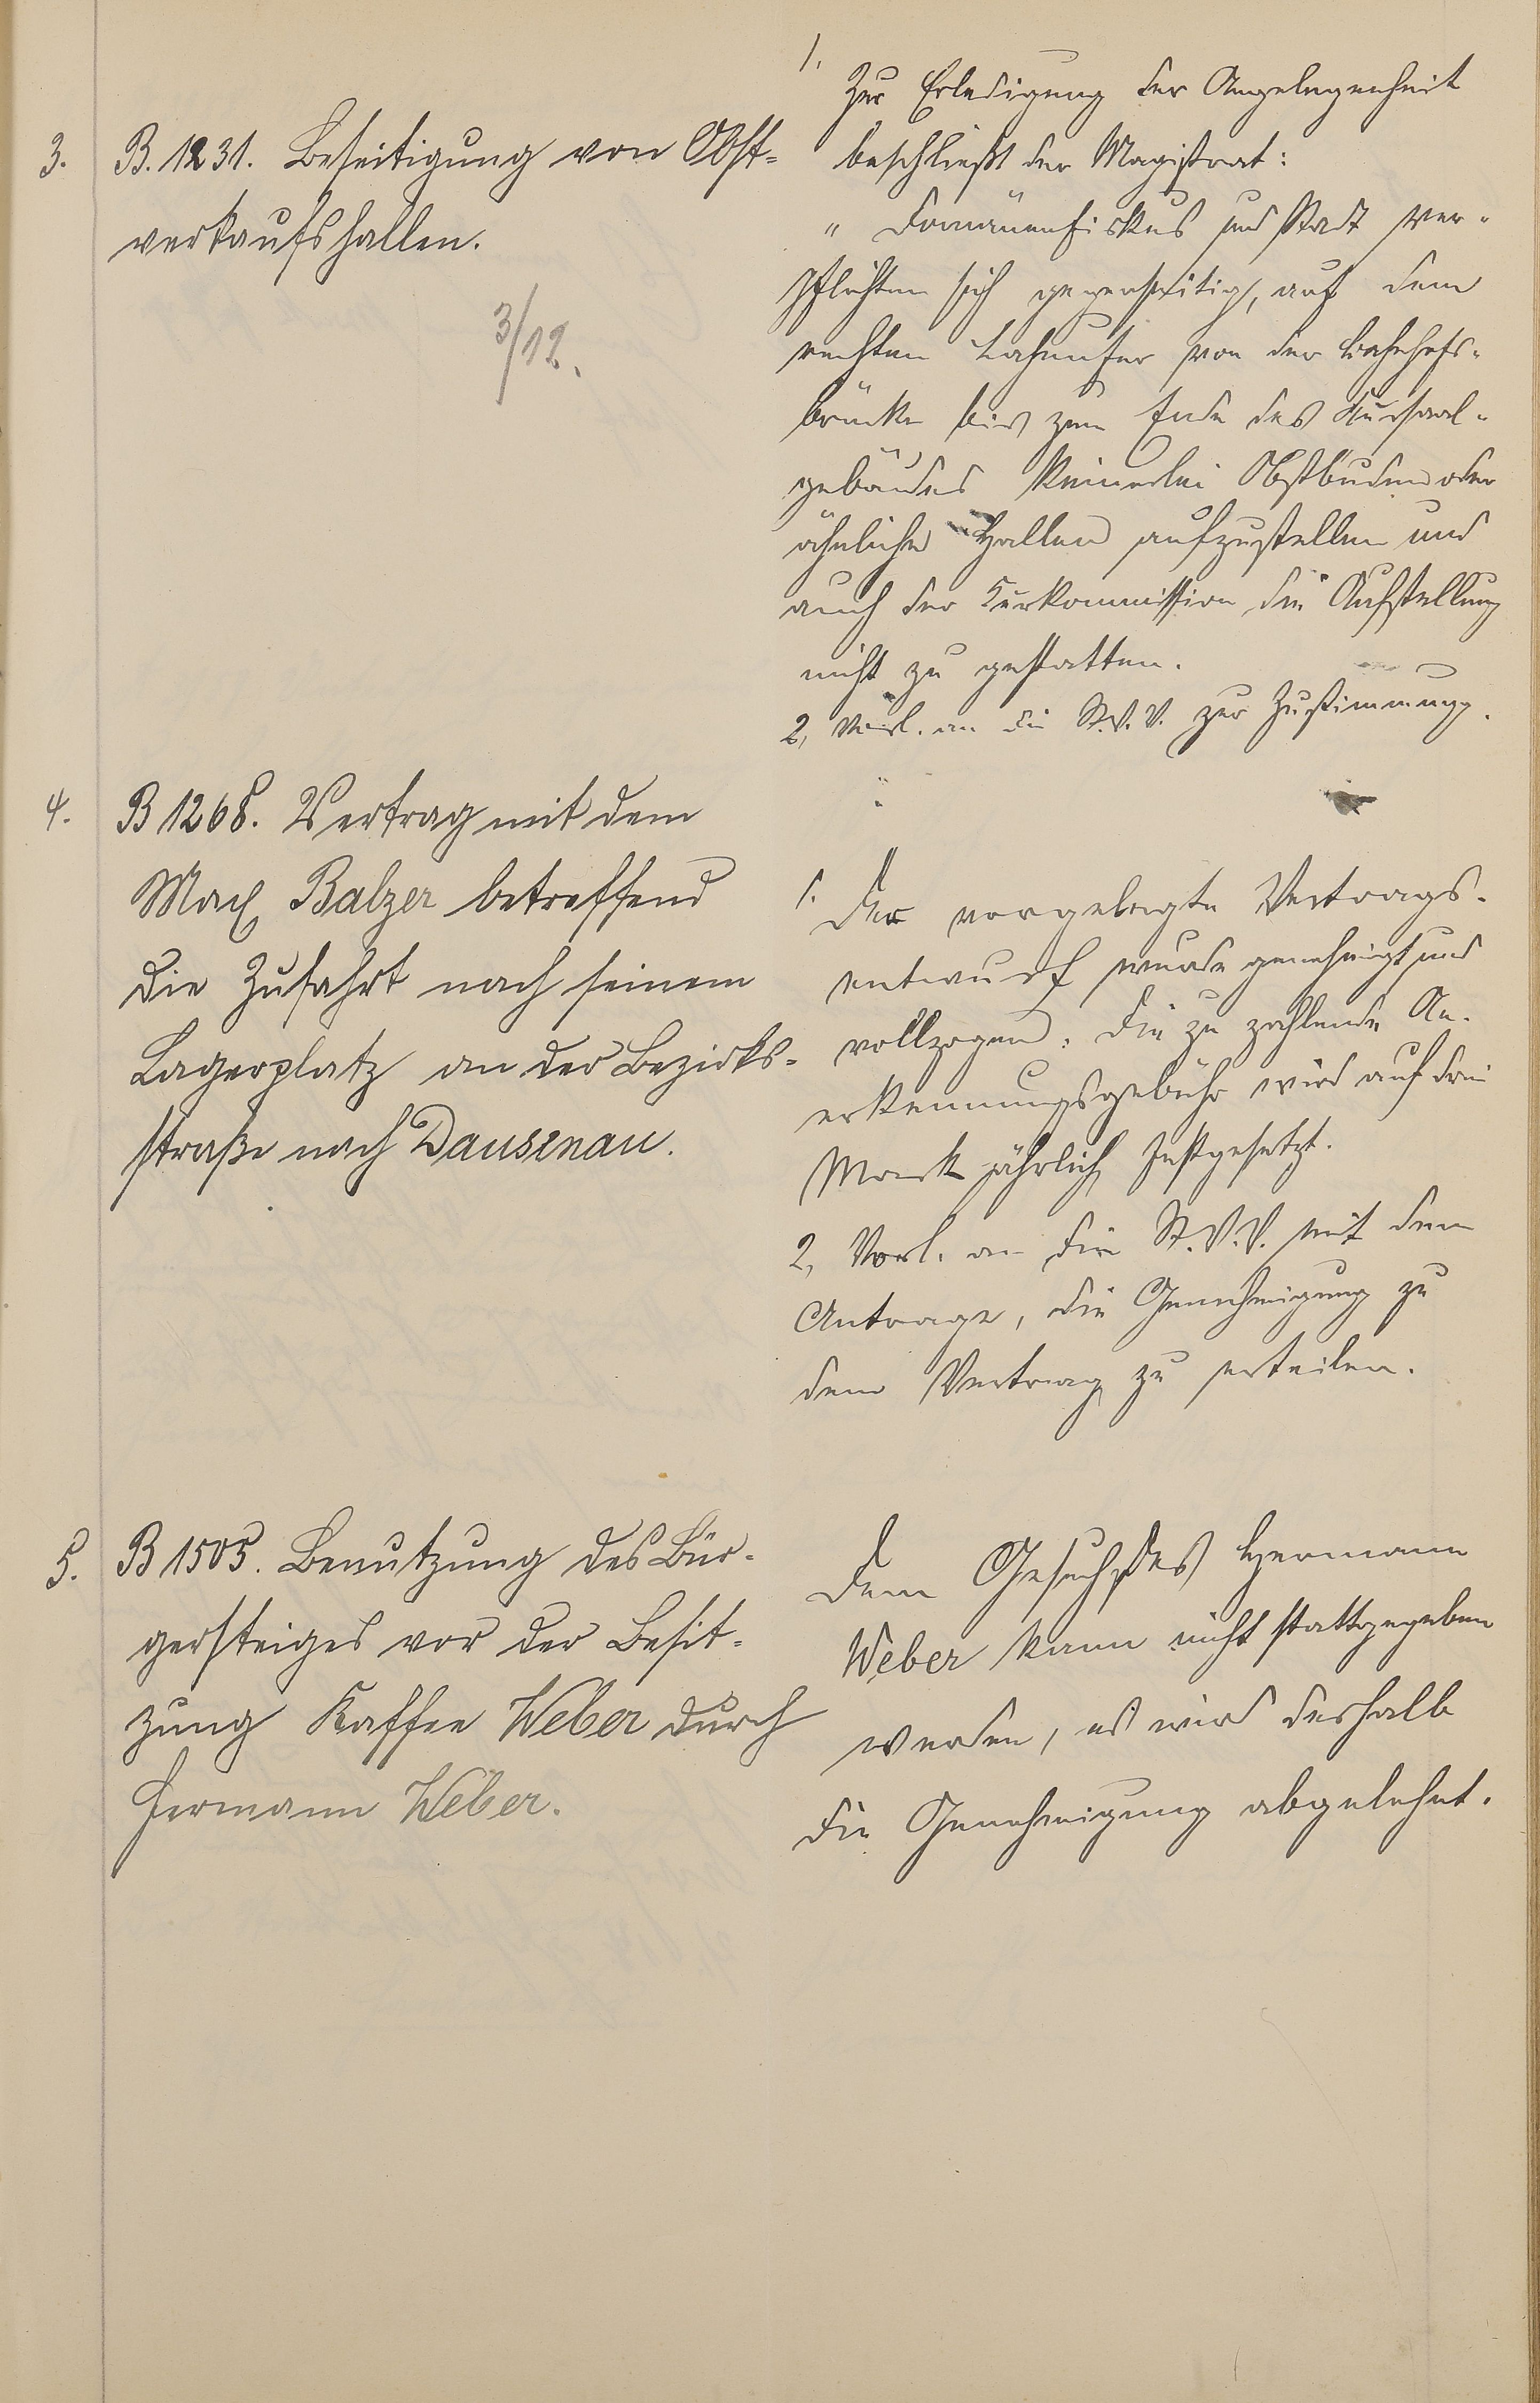 3.
B. 1231. Beseitigung von Obst-
verkaufshallen.
3/12.
1.
Zur Erledigung der Angelegenheit
beschließt der Magistrat:
" Domänenfiskus und Stadt ver-
pflichten sich gegenseitig, auf dem
rechten Lahnufer von der Bahnhofs-
brücke bis zum Ende des Kursaal-
gebäudes keinerlei Obstbuden oder
ähnliche Hallen aufzustellen und
auch der Kurkommission die Aufstellung
nicht zu gestatten.
2, Vorl. an die St.V.V. zur Zustimmung.
4.
B 1268. Vertrag mit dem
Max Balzer betreffend
die Zufahrt nach seinem
Lagerplatz an der Bezirks-
straße nach Dausenau.
1.
Der vorgelegte Vertrags-
entwurf wurde genehmigt und
vollzogen. Die zu zahlende An-
erkennungsgebühr wird auf drei
Mark jährlich festgesetzt.
2, Vorl. an die St.V.V. mit dem
Antrage, die Genehmigung zu
dem Vertrag zu erteilen.
5.
B 1505. Benutzung des Bür-
gersteiges vor der Besit-
zung Kaffee Weber durch
Hermann Weber.
Dem Gesuch des Hermann
Weber kann nicht stattgegeben
werden, es wird deshalb
die Genehmigung abgelehnt.